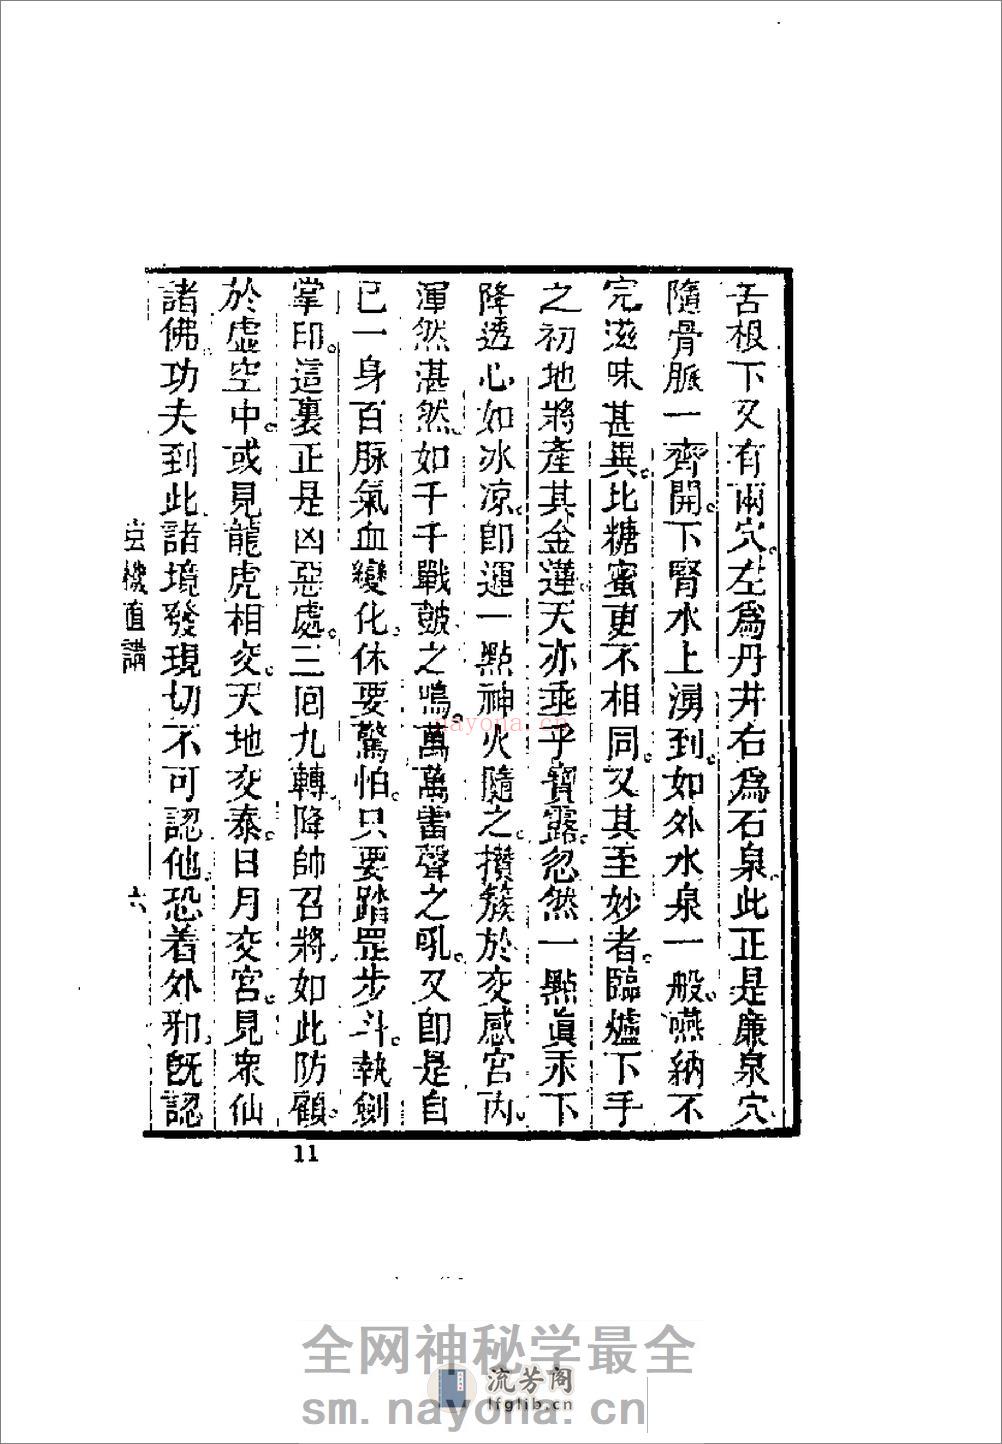 舌根下又有兩穴。左爲丹井右爲石泉。此正是廉泉穴
隨骨脈一齊開。下腎水上湧到。如外水泉一般。嚥納不
完滋味甚異。比糖蜜更不相同。又其至妙者。臨爐下手
之初地將產其金蓮。天亦乖乎寶露。忽然一點眞汞下
降透心如冰凉。即運一點神火隨之。攢簇於交感宮內。
渾然湛然。如千千戰皷之鳴。萬萬雷聲之吼。又即是自
已一身百脉氣血變化。休要驚怕。只要踏罡步斗。執劍
掌印。這裏正是凶惡處。三囘九轉。降帥召將如此防顧。
於虛空中。或見龍虎相交。天地交泰。日月交宮。見衆仙
諸佛。功夫到此諸境發現切不可認他。恐着外邪。旣認
玄機直講
六
11
nayona.cn
全网神秘学最全
流芳阁
lfglib.cn
sm.nayona.cn